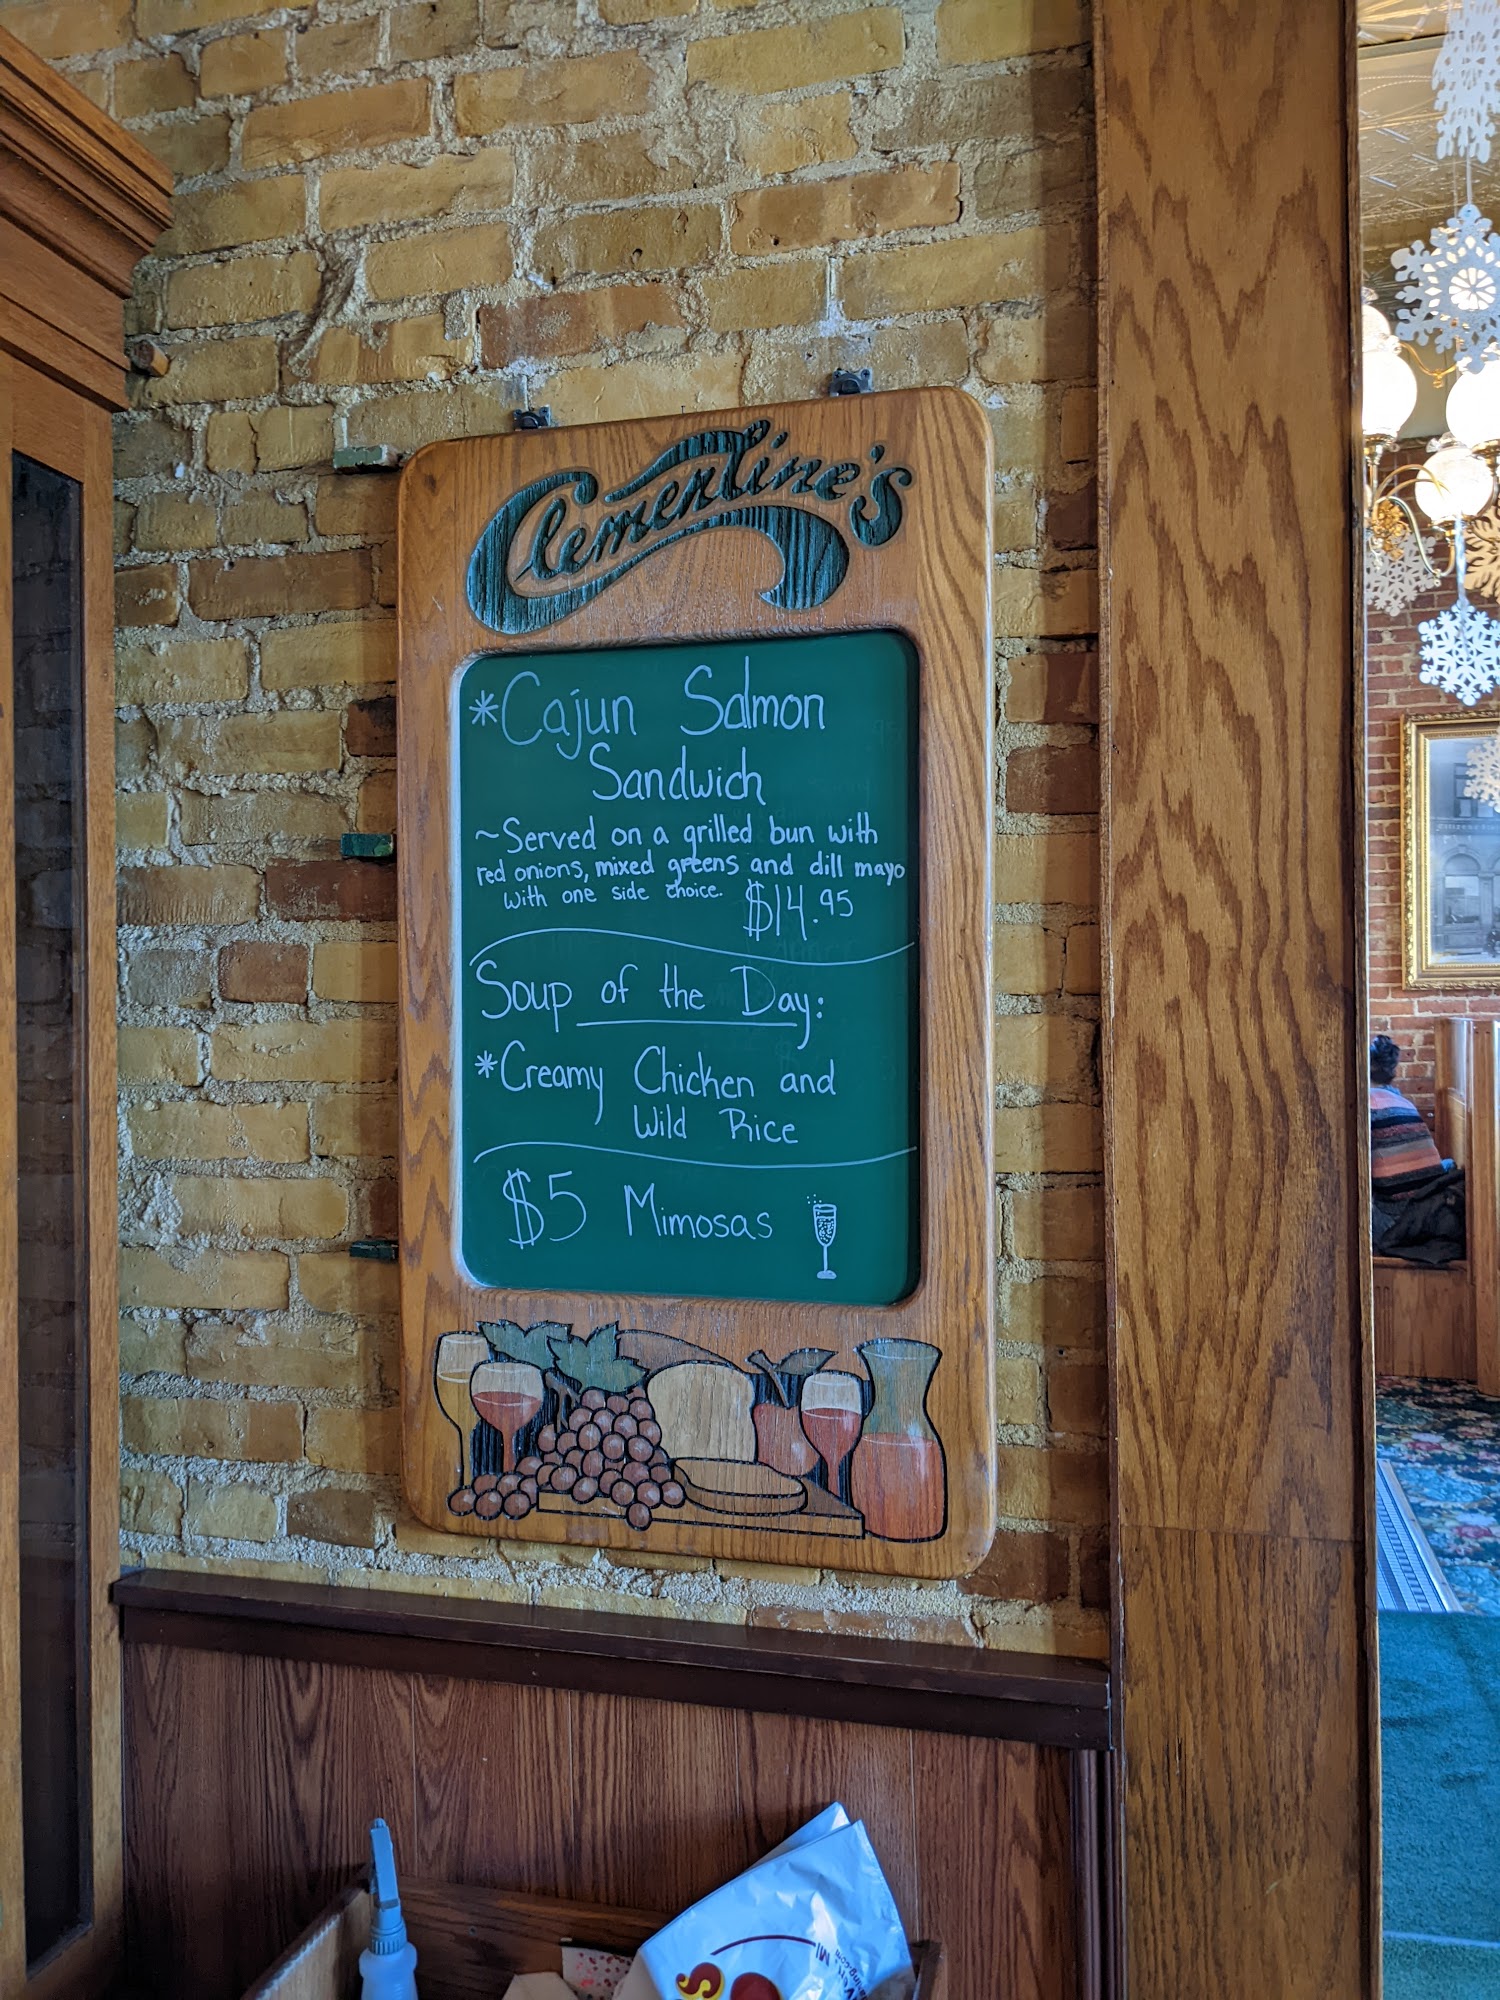 Clementine's
*Cajun Salmon
Sandwich
~Served on a grilled bun with
red onions, mixed greens and dill mayo
with one side choice. $14.95
Soup of the Day:
*Creamy Chicken and
Wild Rice
$5 Mimosas